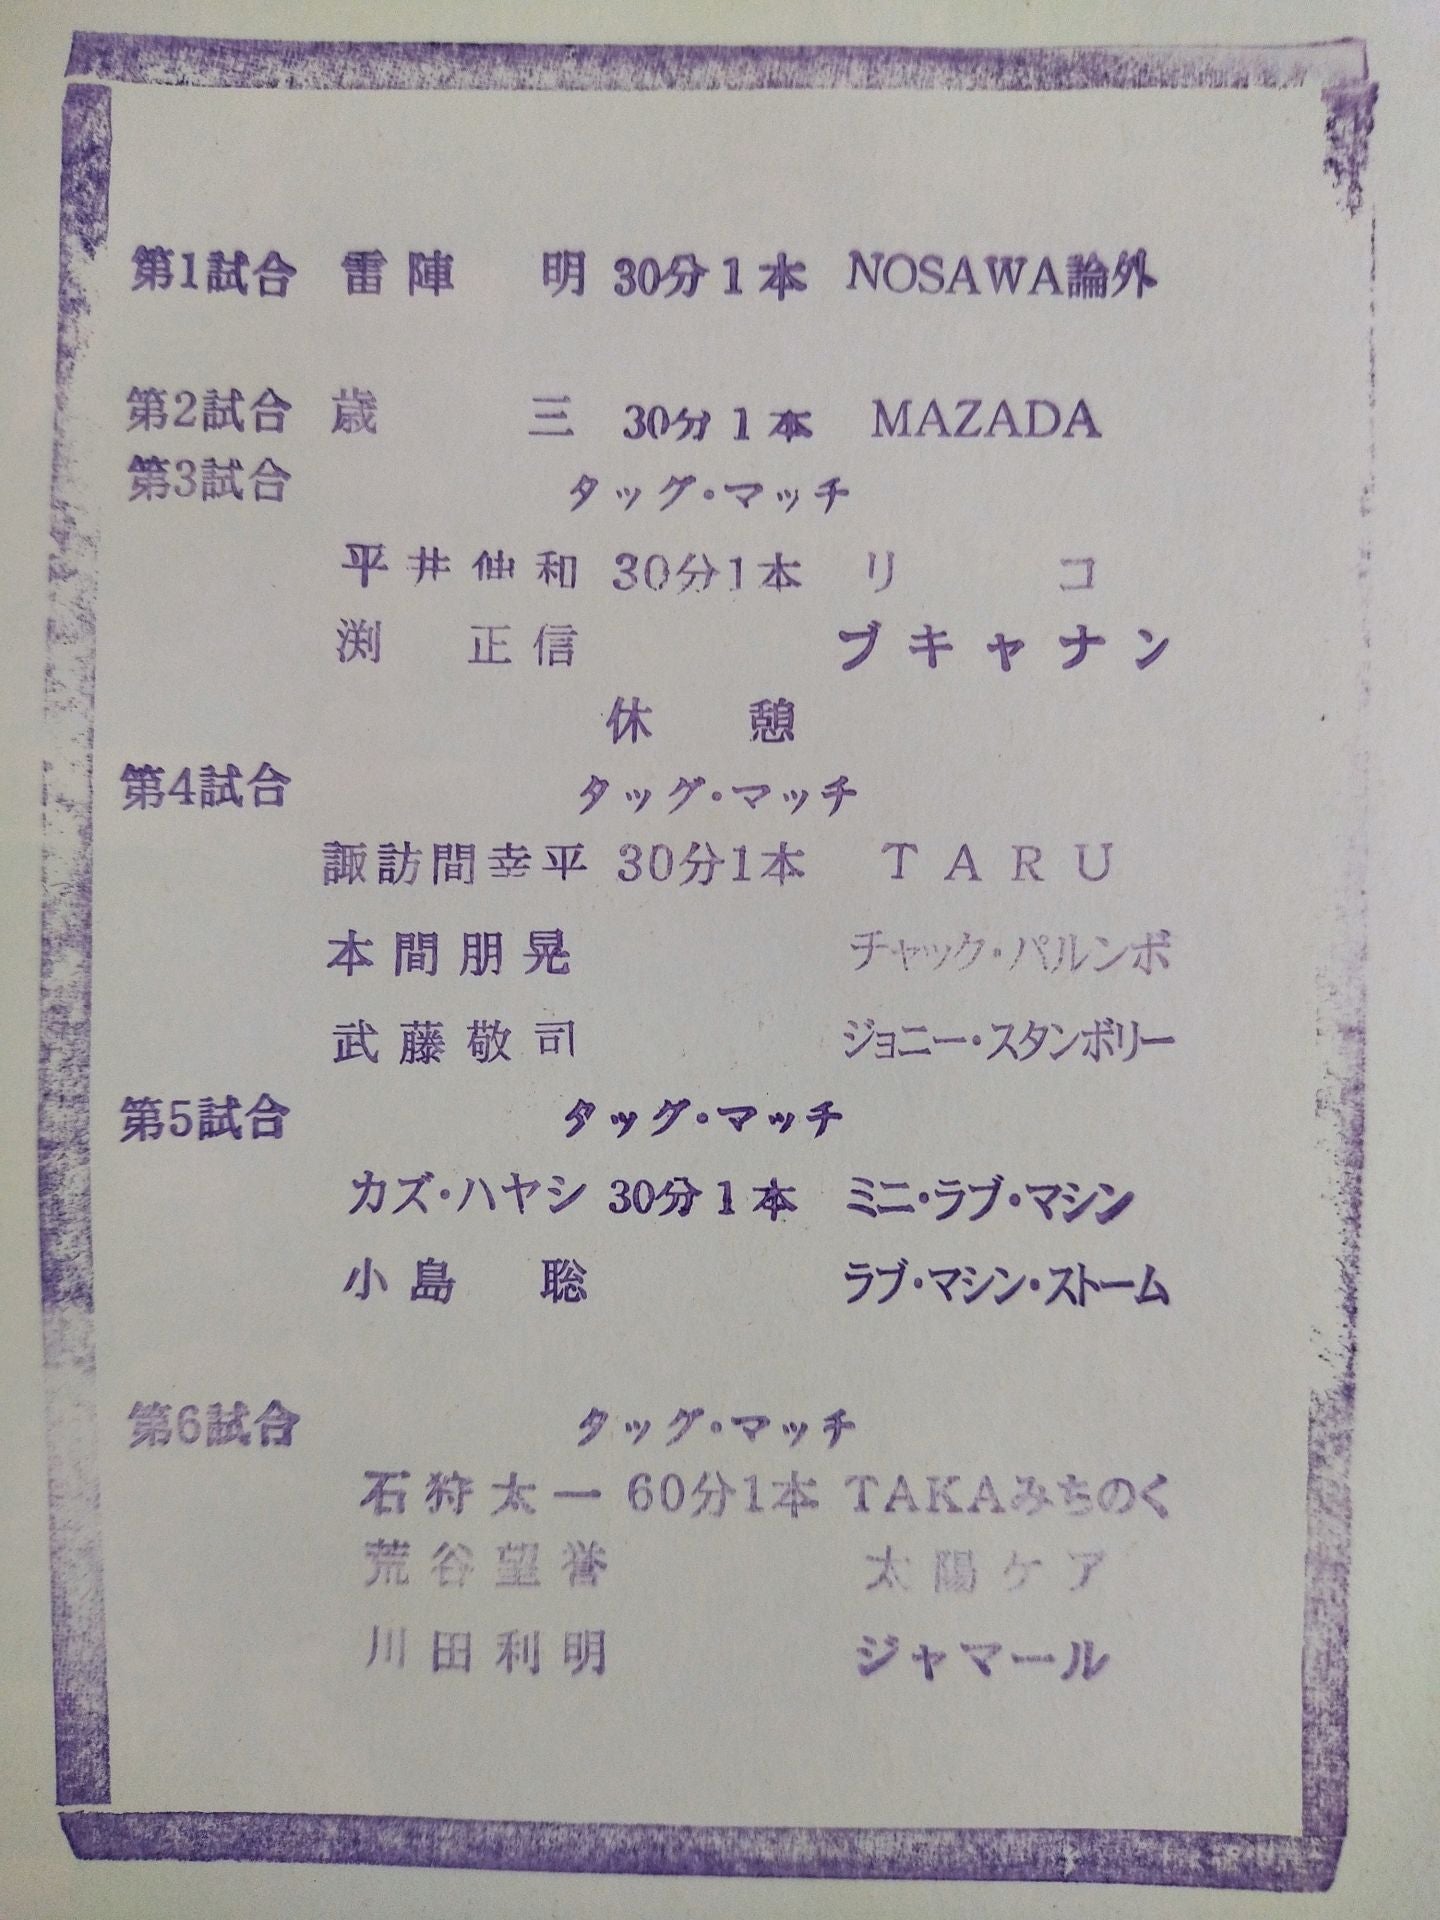 第1試合 雷陣 明 30分1本 NOSAWA論外
第2試合 歳 三 30分1本 MAZADA
第3試合 タッグ・マッチ
平井伸和 30分1本 リ コ
渕 正信 ブキャナン
休 憩
第4試合 タッグ・マッチ
諏訪間幸平 30分1本 TARU
本間朋晃 チャック・パルンボ
武藤敬司 ジョニー・スタンボリー
第5試合 タッグ・マッチ
カズ・ハヤシ 30分1本 ミニ・ラブ・マシン
小島 聡 ラブ・マシン・ストーム
第6試合 タッグ・マッチ
石狩太一 60分1本 TAKAみちのく
荒谷望誉 太陽ケア
川田利明 ジャマール